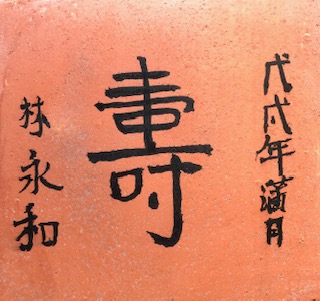 戊戌年蒲月
壽
林永和